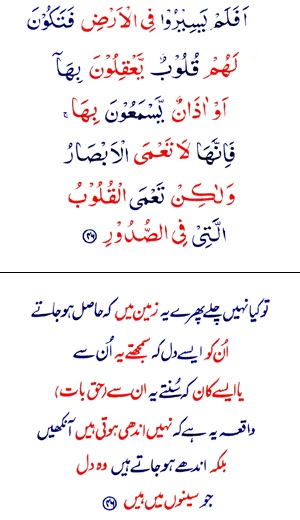 اَفَلَمْ يَسِيْرُوْا فِى الْاَرْضِ فَتَكُوْنَ
لَهُمْ قُلُوْبٌ يَّعْقِلُوْنَ بِهَاۤ
اَوْ اٰذَانٌ يَّسْمَعُوْنَ بِهَا ۚ
فَاِنَّهَا لَا تَعْمَى الْاَبْصَارُ
وَلٰكِنْ تَعْمَى الْقُلُوْبُ
الَّتِىْ فِى الصُّدُوْرِ ﴿۴۶﴾
تو کیا نہیں چلے پھرے یہ زمین میں کہ حاصل ہوجاتے
اُن کو ایسے دل کہ سمجھتے یہ اُن سے
یا ایسے کان کہ سُنتے یہ ان سے (حق بات)
واقعہ یہ ہے کہ نہیں اندھی ہوتی ہیں آنکھیں
بلکہ اندھے ہوجاتے ہیں وہ دل
جو سینوں میں ہیں ﴿۴۶﴾